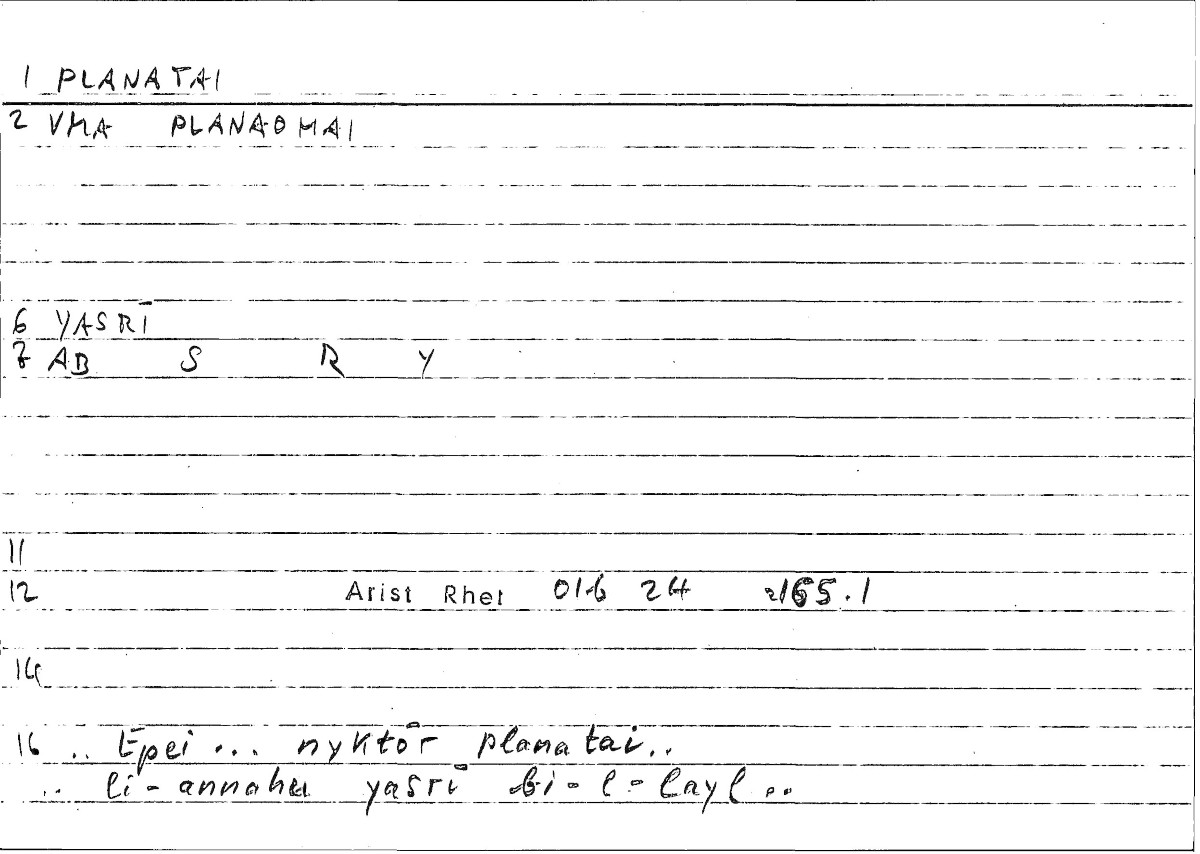 1 PLANATAI
2 VMA PLANAOMAI
6 YASRĪ
7 AB S R Y
11
12 Arist Rhet 01b 24 165.1
14
16 .. Epei ... nyktōr planatai..
.. li-annahu yasrī bi-l-layl ..